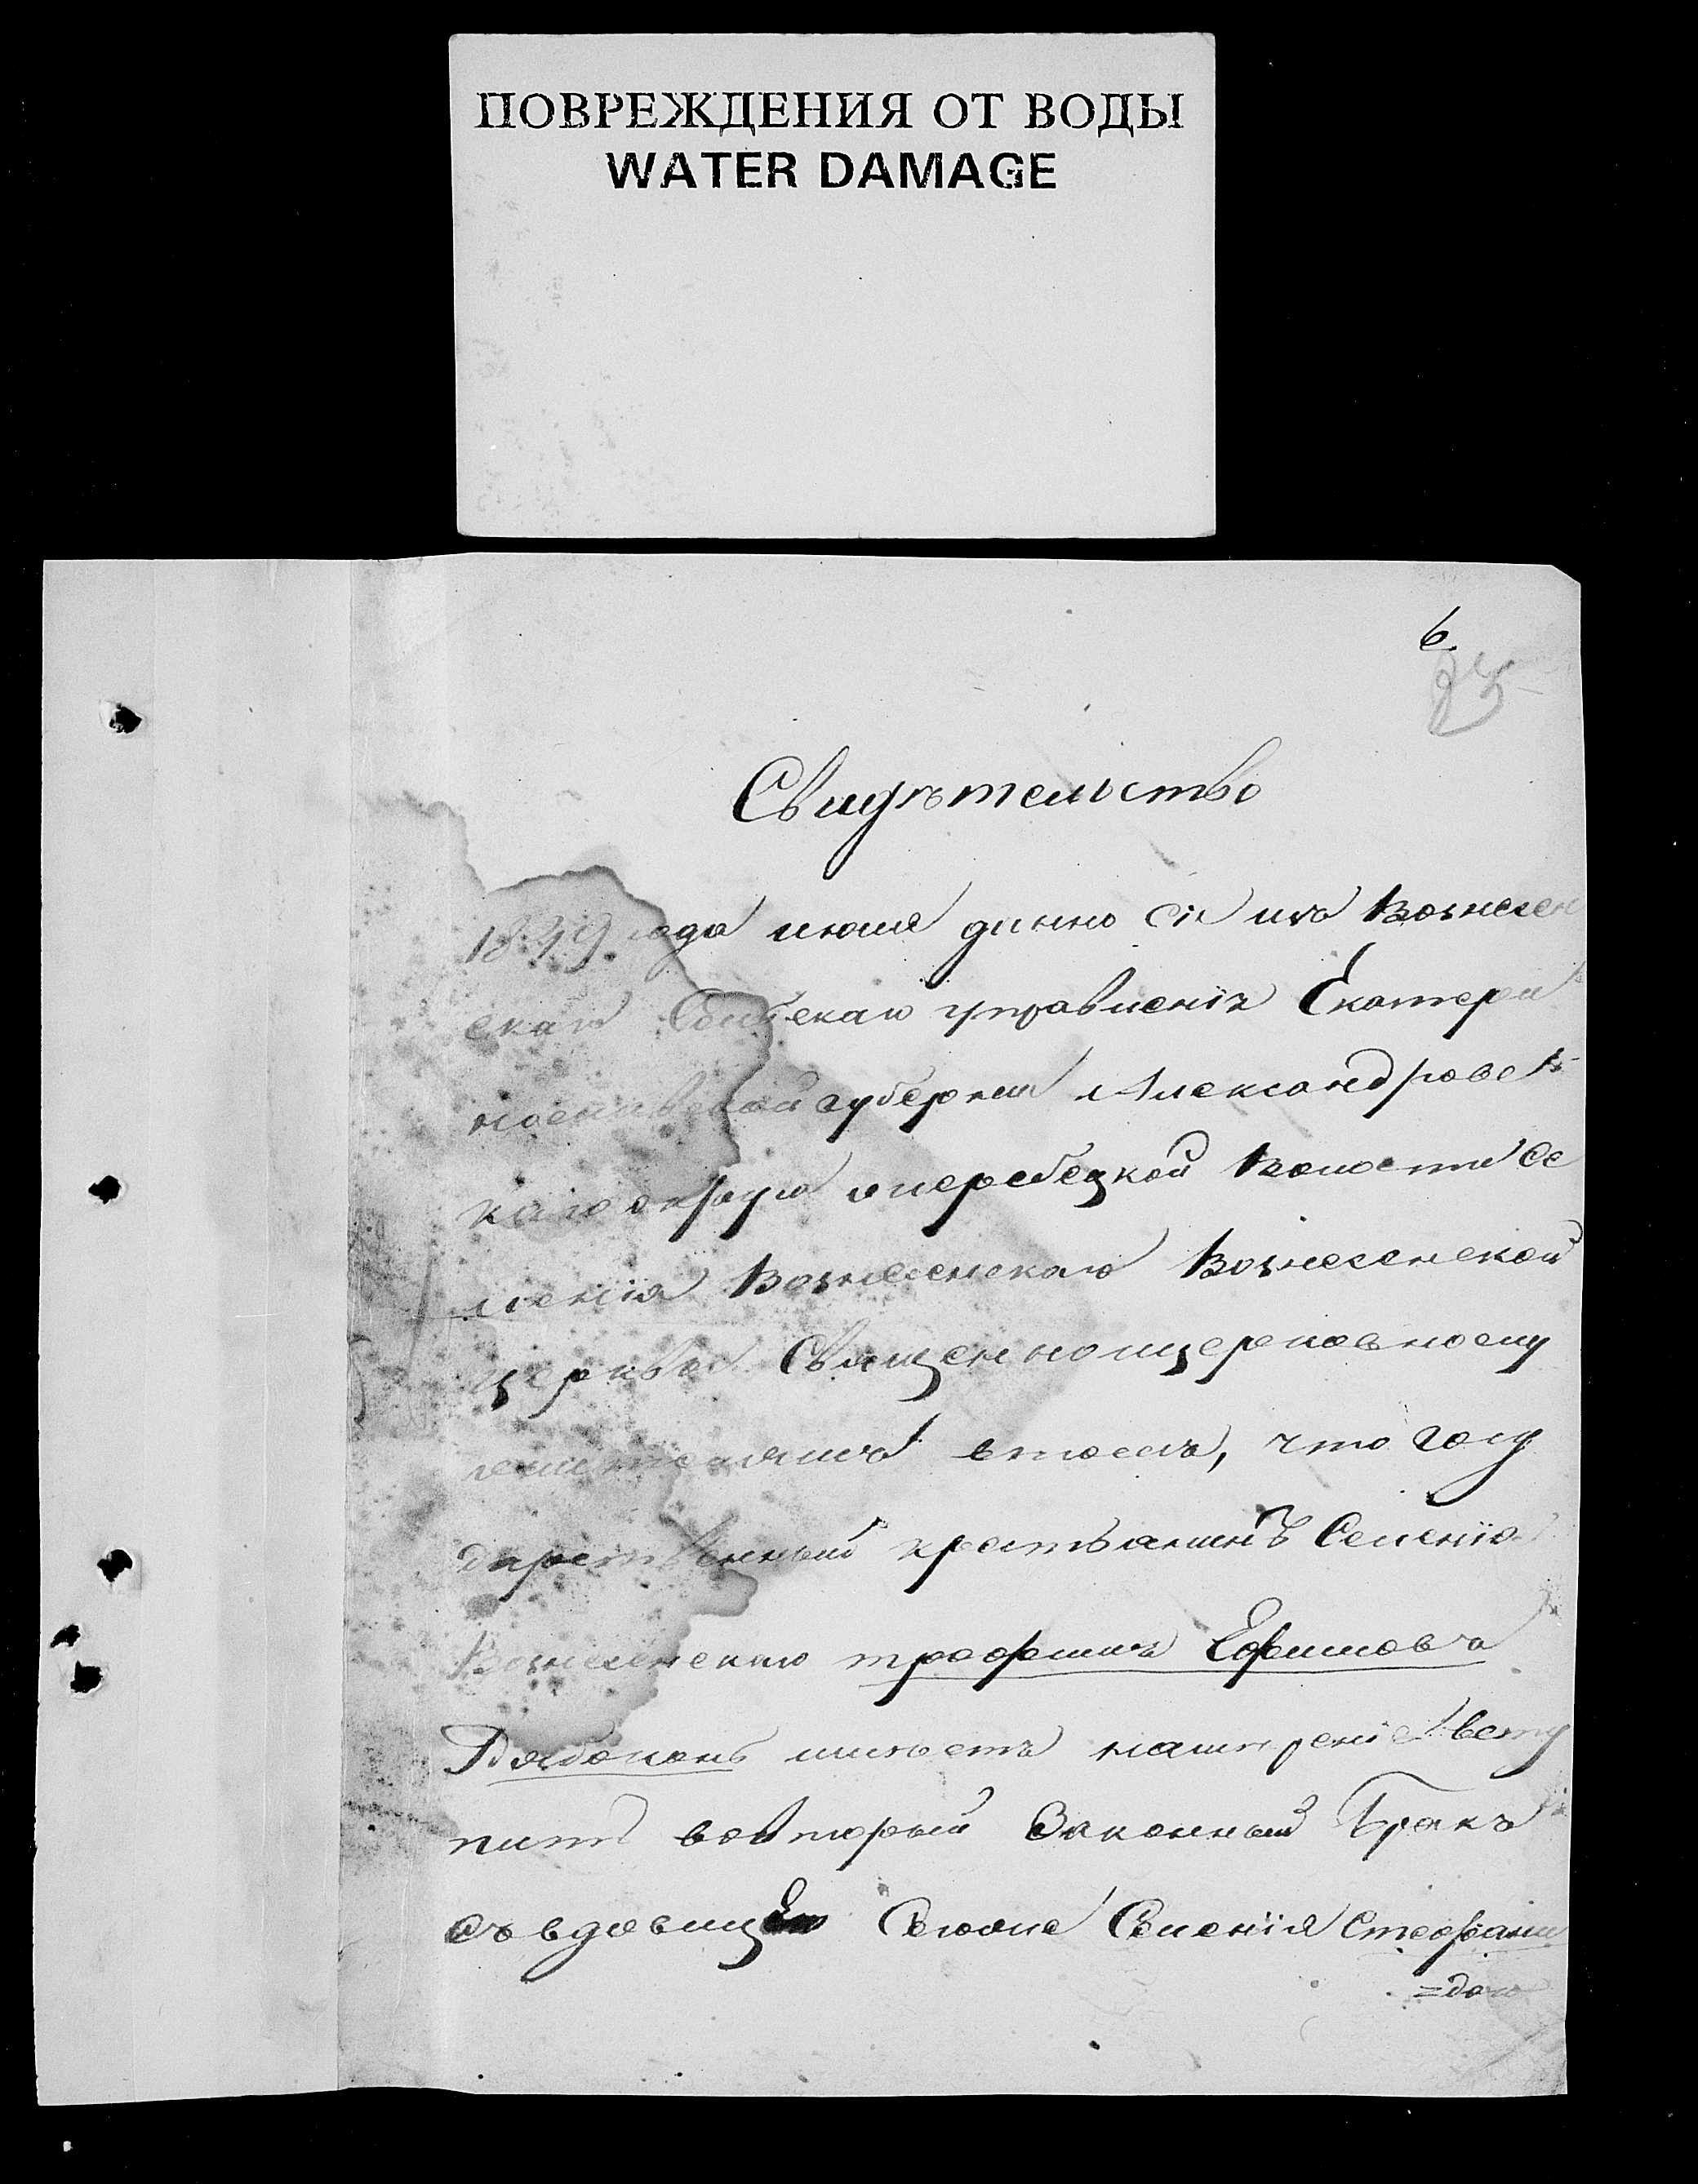 ПОВРЕЖДЕНИЯ ОТ ВОДЫ
WATER DAMAGE
6
Свидѣтельство
1849 года июля данно сіе изъ Вознесен
скаго Сельскаго управленія Екатери
нославской губерніи Александровс
каго округа перебецкой Волости Се
ленія Вознесенскаго Вознесенской
церкви Священноцерковному
служителямъ втомъ, что госу
дарственный крестьянинъ Селенія
Вознесенскаго трофимъ Ефимовъ
имѣетъ намѣреніе всту
пить вовторый Законный Бракъ
съ вдовицею Селенія Стефани
=дою